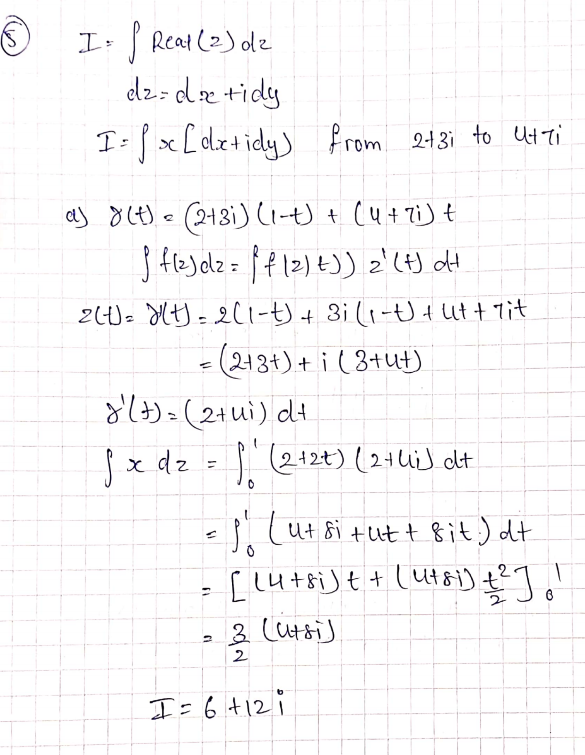 ⑤ I = ∫ Real(z) dz
dz = dx + idy
I = ∫ x [dx + idy) from 2+3i to 4+7i
a) γ(t) = (2+3i)(1-t) + (4+7i)t
∫ f(z)dz = ∫ f(z)t)) z'(t) dt
z(t) = γ(t) = 2(1-t) + 3i(1-t) + 4t + 7it
= (2+3t) + i(3+4t)
γ'(t) = (2+4i) dt
∫ x dz = ∫₀¹ (2+2t)(2+4i) dt
= ∫₀¹ (4+8i+4t+8it) dt
= [(4+8i)t + (4+8i) t²/2]₀¹
= 3/2 (4+8i)
I = 6+12i